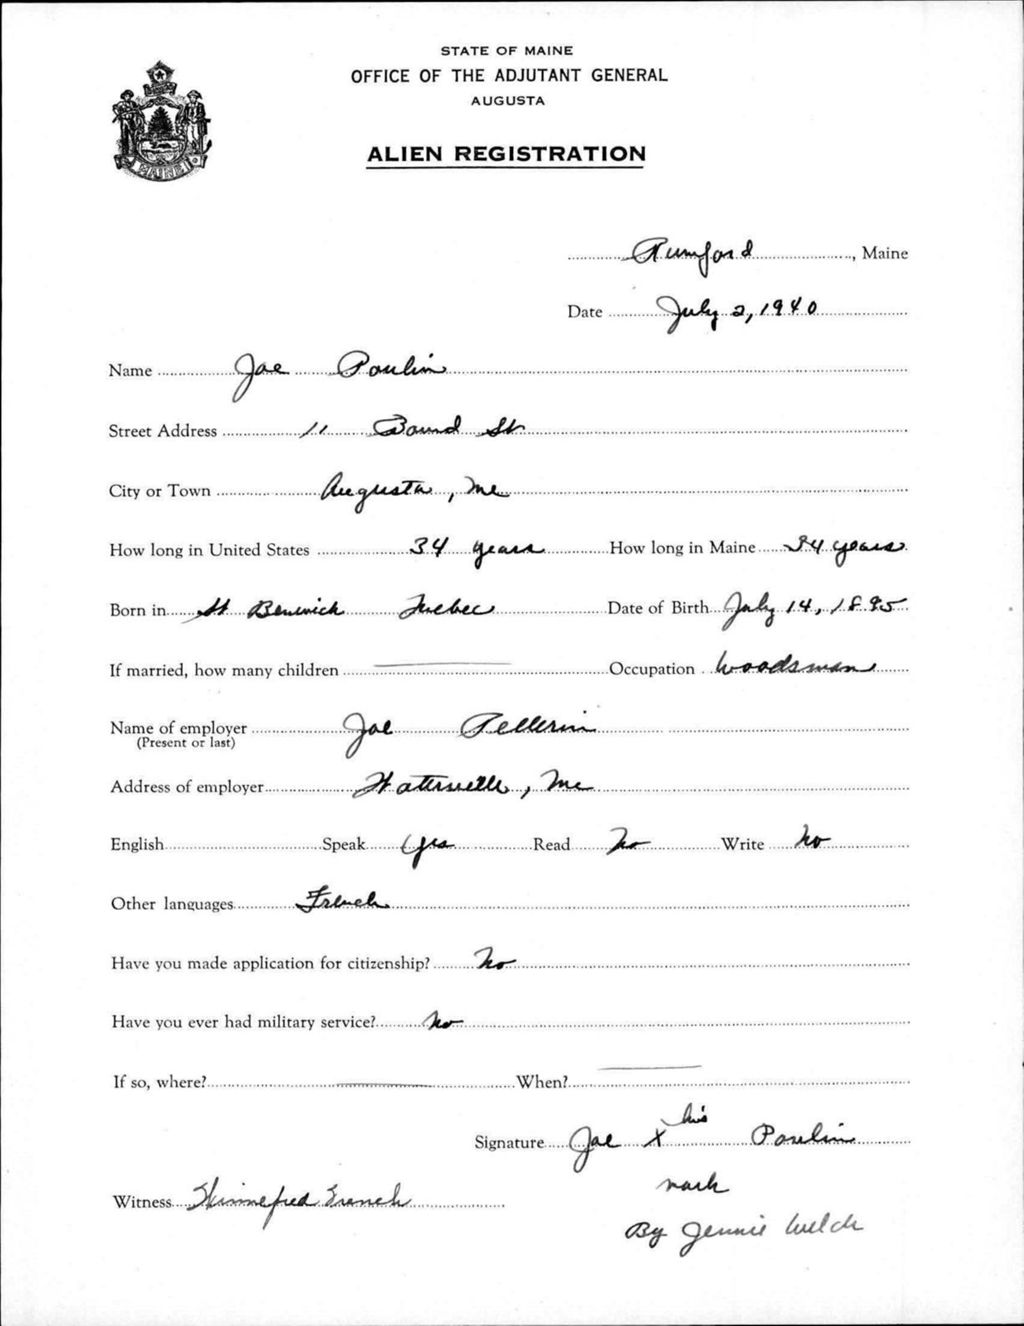 STATE OF MAINE
OFFICE OF THE ADJUTANT GENERAL
AUGUSTA
ALIEN REGISTRATION
MAINE
Rumford, Maine
Date July 2, 1940
Name Joe Poulin
Street Address 11 Bound St
City or Town Augusta, Me
How long in United States 34 years How long in Maine 34 years
Born in St Quebec Date of Birth July 14, 1895
If married, how many children Occupation Woodsman
Name of employer Joe Pellerin
(Present or last)
Address of employer Waterville, Me
English Speak yes Read No Write No
Other languages French
Have you made application for citizenship? No
Have you ever had military service? No
If so, where? When?
his
Signature Joe X Poulin
mark
Witness Winnefred French
By Jennie Welch